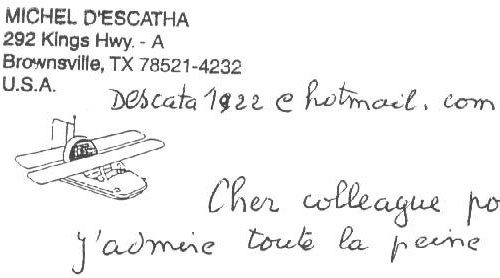 MICHEL D'ESCATHA
292 Kings Hwy. - A
Brownsville, TX 78521-4232
U.S.A.
Descata1922@hotmail.com
Cher colleague po
j'admire toute la peine